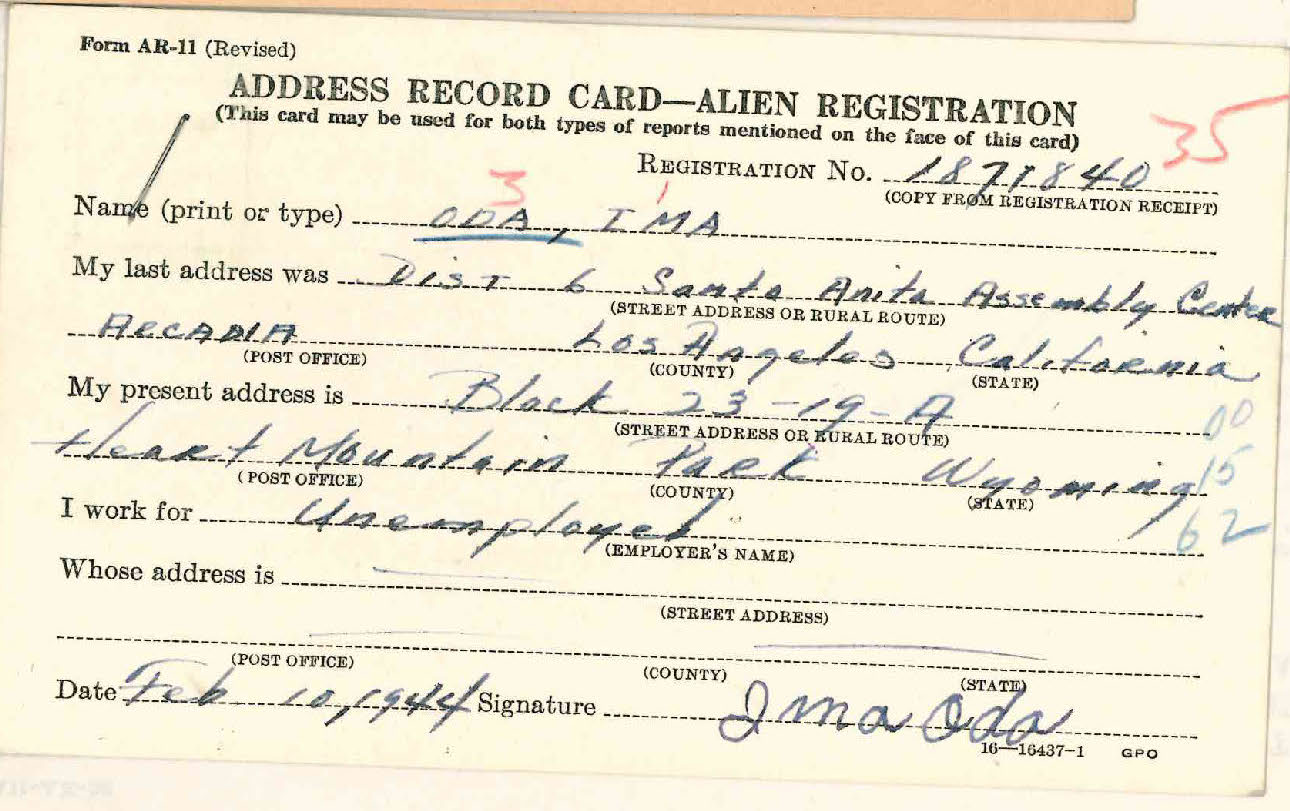 Form AR-11 (Revised)
ADDRESS RECORD CARD—ALIEN REGISTRATION
(This card may be used for both types of reports mentioned on the face of this card)
35
REGISTRATION No. 1871840
(COPY FROM REGISTRATION RECEIPT)
3 1
Name (print or type) ODA, IMA
My last address was Dist 6 Santa Anita Assembly Center
(STREET ADDRESS OR RURAL ROUTE)
ARCADIA Los Angeles California
(POST OFFICE) (COUNTY) (STATE)
My present address is Block 23-19-A
(STREET ADDRESS OR RURAL ROUTE) 00
Heart Mountain Park Wyoming 15
(POST OFFICE) (COUNTY) (STATE)
I work for Unemployed 62
(EMPLOYER'S NAME)
Whose address is
(STREET ADDRESS)
(POST OFFICE) (COUNTY) (STATE)
Date Feb 10, 1944 Signature Ima Oda
16—16437-1 GPO